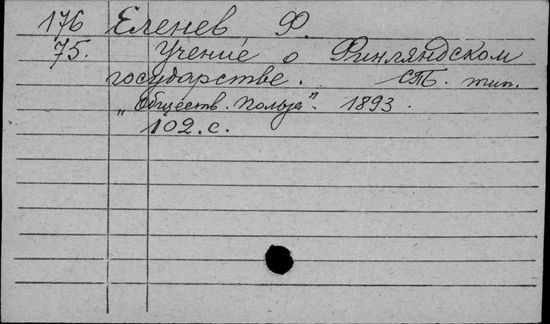 176 Еленев Ф.
75. Учение о Финляндском
государстве. СПБ. тип.
„Обществ. Польза". 1893.
102.с.